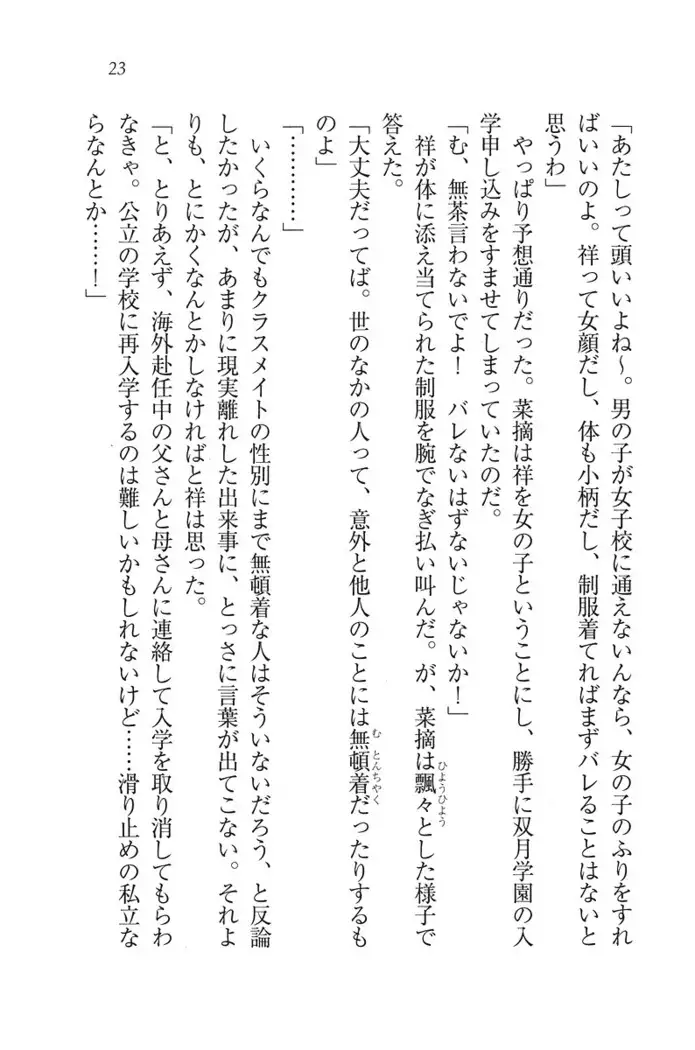 23
「あたしって頭いいよね～。男の子が女子校に通えないんなら、女の子のふりをすれ
ばいいのよ。祥って女顔だし、体も小柄だし、制服着てればまずバレることはないと
思うわ」
やっぱり予想通りだった。菜摘は祥を女の子ということにし、勝手に双月学園の入
学申し込みをすませてしまっていたのだ。
「む、無茶言わないでよ！　バレないはずないじゃないか！」
祥が体に添え当てられた制服を腕でなぎ払い叫んだ。が、菜摘は飄々とした様子で
ひようひよう
答えた。
「大丈夫だってば。世のなかの人って、意外と他人のことには無頓着だったりするも
む とんちやく
のよ」
「…………」
いくらなんでもクラスメイトの性別にまで無頓着な人はそういないだろう、と反論
したかったが、あまりに現実離れした出来事に、とっさに言葉が出てこない。それよ
りも、とにかくなんとかしなければと祥は思った。
「と、とりあえず、海外赴任中の父さんと母さんに連絡して入学を取り消してもらわ
なきゃ。公立の学校に再入学するのは難しいかもしれないけど……滑り止めの私立な
らなんとか……！」